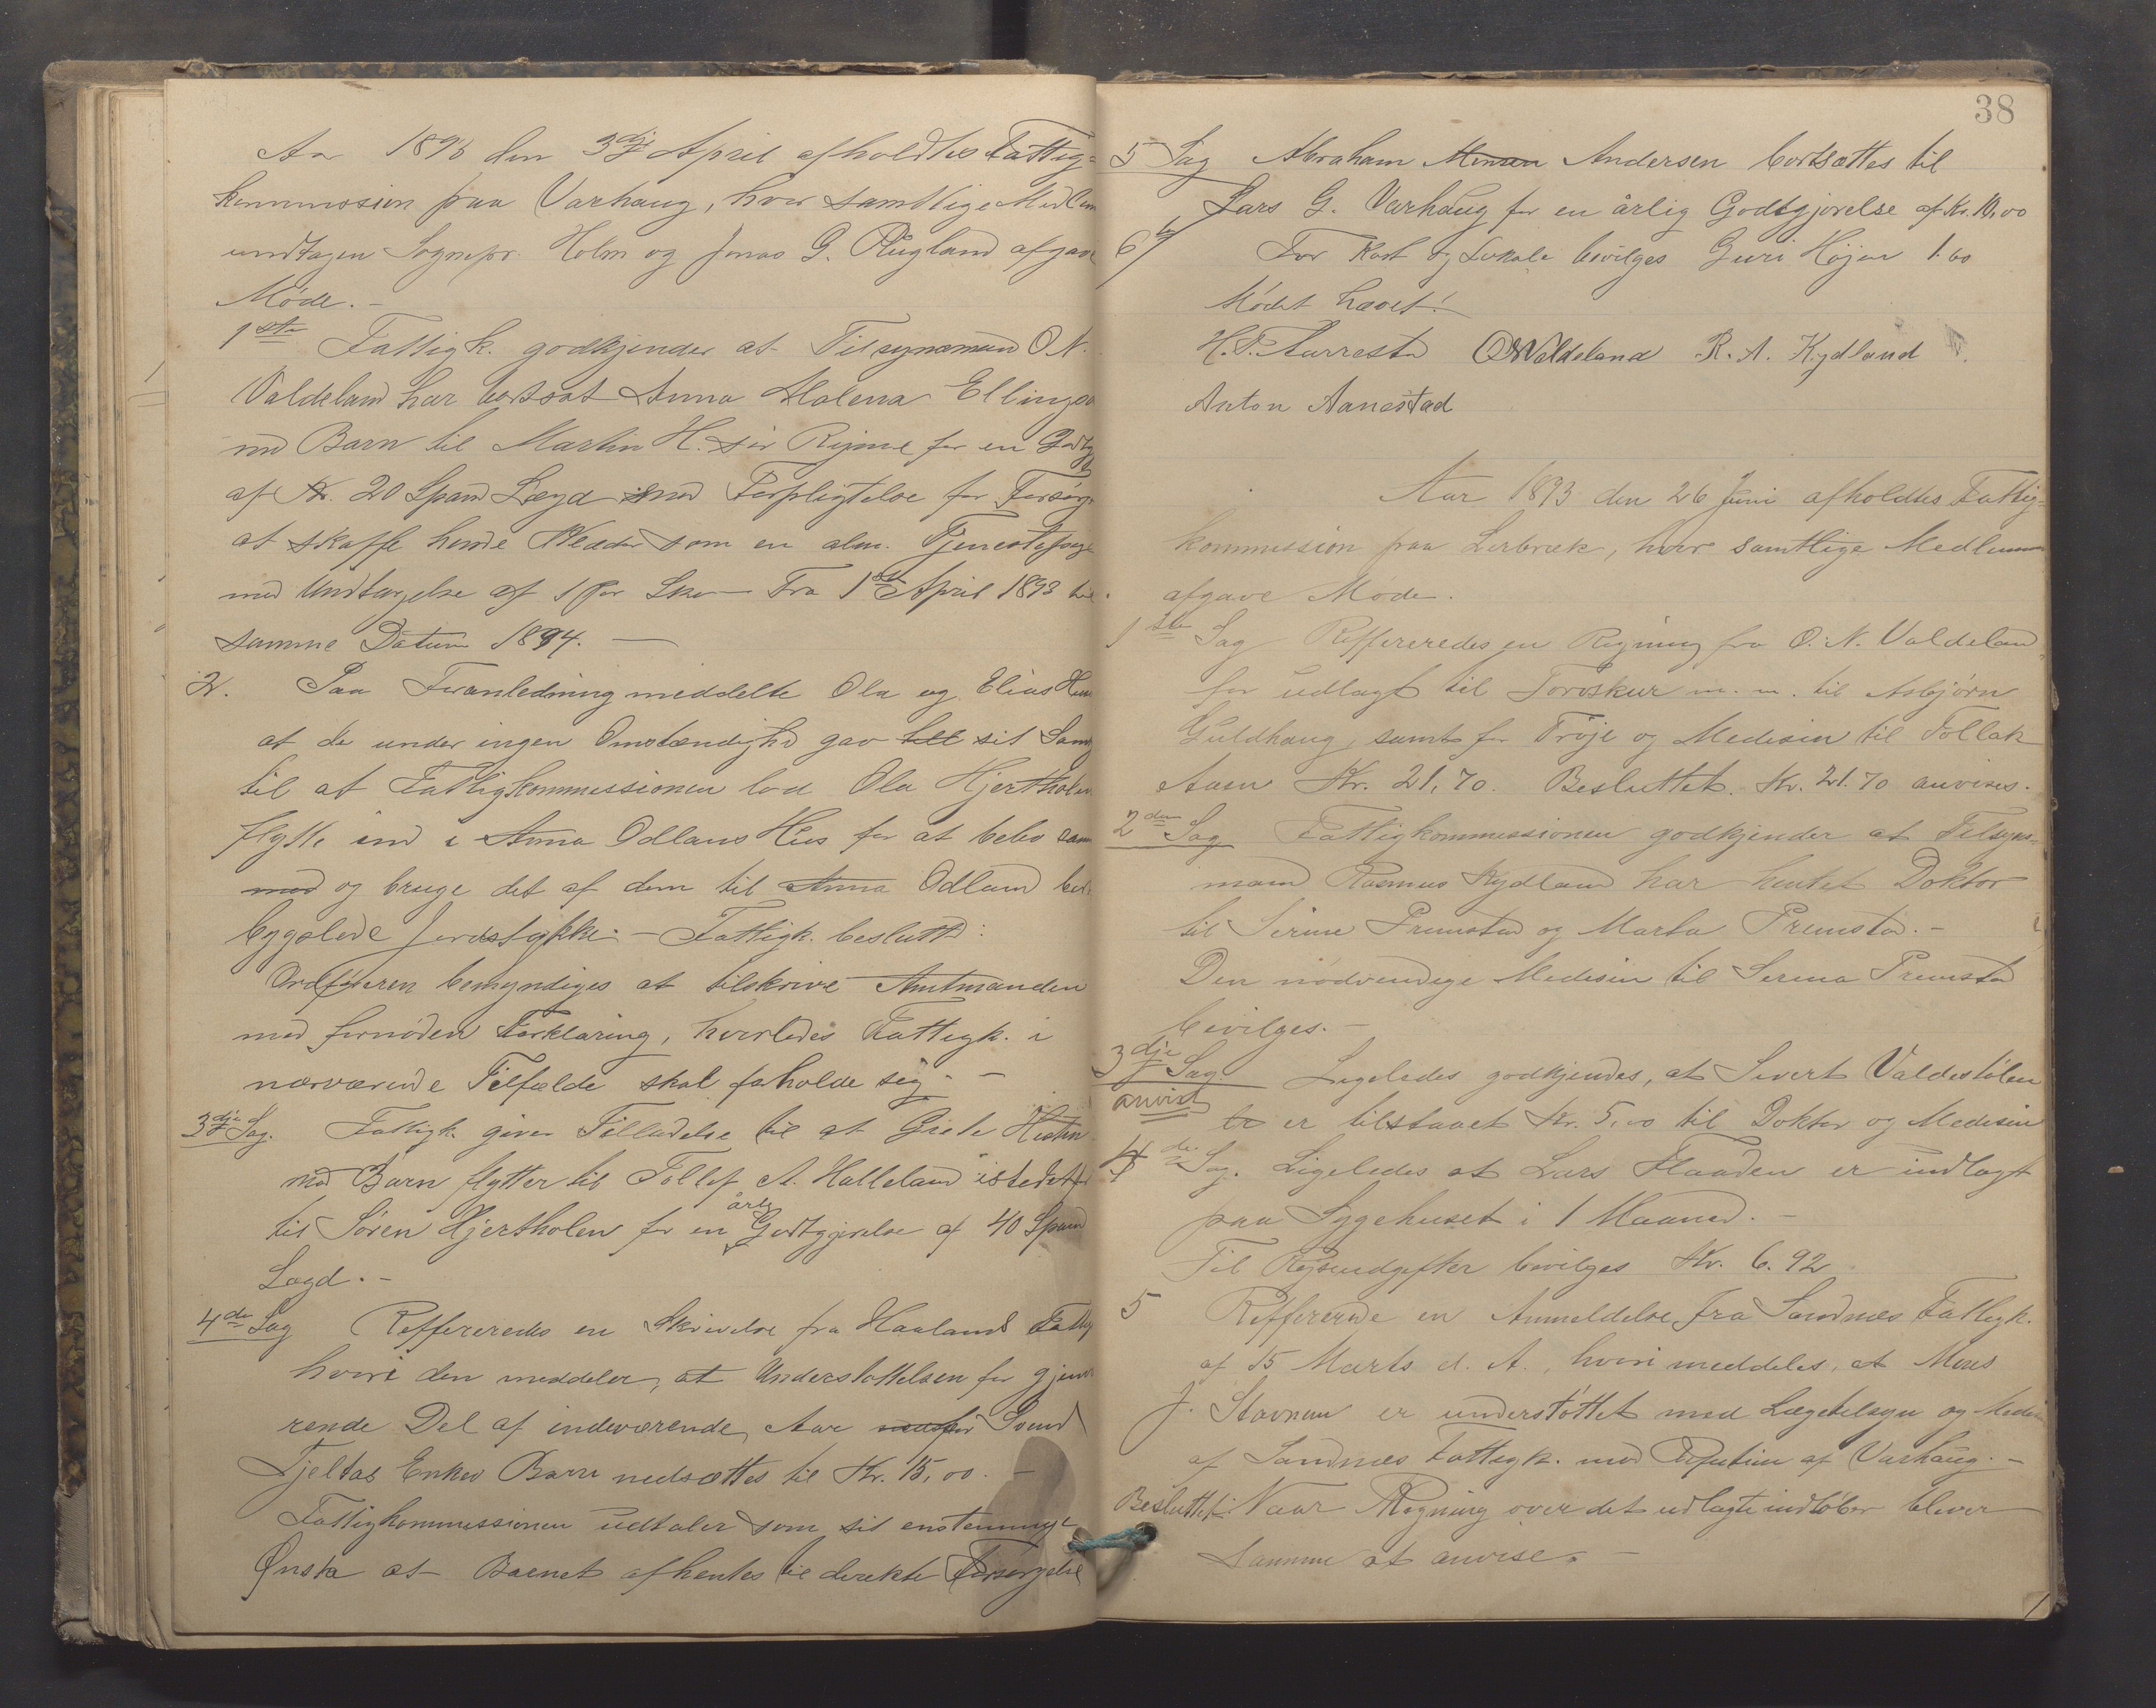 Aar 1893 den 3dje April afholdtes Fattig-
kommission paa Varhaug, hvor samtlige Medlem
undtagen Sognepr. Holm og Jonas G. Rugland afgave
Møde. -
1ste Fattigk. godkjender at Tilsynsmand O. N.
Valdeland har bortsat Anna Malena Ellingsd
med Barn til Martin H. sør Rejme for en Godtgj
af Kr. 20 Spand Lægd med Forpligtelse for Forsørg
at skaffe hende Klæder som en alm. Tjenestepige
med Undtagelse af 1 Par Sko - Fra 1ste April 1893 til
samme Datum 1894. -
2. Paa Foranledning meddelte Ola og Elias
at de under ingen Omstændighed gav sit Samt
til at Fattigkommissionen lod Ola Hjertholen
flytte ind i Anna Odlans Hus for at bebo sam
med og bruge det af dem til Anna Odland
bygslede Jordstykke. - Fattigk. beslutted:
Ordføreren bemyndiges at tilskrive Amtmanden
med fornøden Forklaring, hvorledes Fattigk. i
nærværende Tilfælde skal forholde sig. -
3dje Sag. Fattigk. giver Tilladelse til at Grete
med Barn flytter til Tollef A. Halleland istedetfor
til Søren Hjertholen for en årlig Godtgjørelse af 40 Spand
Lægd. -
4de Sag Reffereredes en Skrivelse fra Haalands Fattig
hvori den meddeler, at Understøttelsen for gjenv
rende Del af indeværende Aar
Fjeltas Enkes Barn nedsættes til Kr. 15,00. -
Fattigkommissionen udtaler som sit enstemmige
Ønske at Barnet afhentes til direkte Forsørgelse
38
5 Sag Abraham Monsen Andersen bortsættes til
Lars G. Varhaug for en årlig Godtgjørelse af Kr. 10,00
6 For Kost og Lokale bevilges Guri Højer 1.60
Mødet hævet!
H. T. Aarrestad O N Valdeland R. A. Kydland
Anton Aanestad
Aar 1893 den 26 Juni afholdtes Fattig-
kommission paa Lerbræk, hvor samtlige Medlemmer
afgave Møde.
1ste Sag Reffereredes en Regning fra O. N. Valdeland
for udlagt til Torvskur m. m. til Asbjørn
Guldhaug, samt for Trøje og Medisin til Tollak
Aaen Kr. 21,70. Besluttet. Kr. 21.70 anvises.
2den Sag Fattigkommissionen godkjender at Tilsyns-
mand Rasmus Kydland har hentet Doktor
til Serine Prumstad og Marta Prumstad. -
Den nødvendige Medisin til Serina Prumstad
bevilges. -
3dje Sag. Ligeledes godkjendes, at Sivert Valdestølen
anvist er tilstaaet Kr. 5,00 til Doktor og Medisin
4de Sag. Ligeledes at Lars Flaaden er indlagt
paa Sygehuset i 1 Maaned. -
Til Rejseudgifter bevilges Kr. 6.92
5 Refferede en Anmeldelse fra Sandnes Fattigk.
af 15 Marts d. A., hvori meddeles, at Mons
J. Stavnem er understøttet med Lægetilsyn og Medi
af Sandnes Fattigk. med Refution af Varhaug. -
Besluttet: Naar Regning over det udlagte indløber bliver
samme at anvise. -